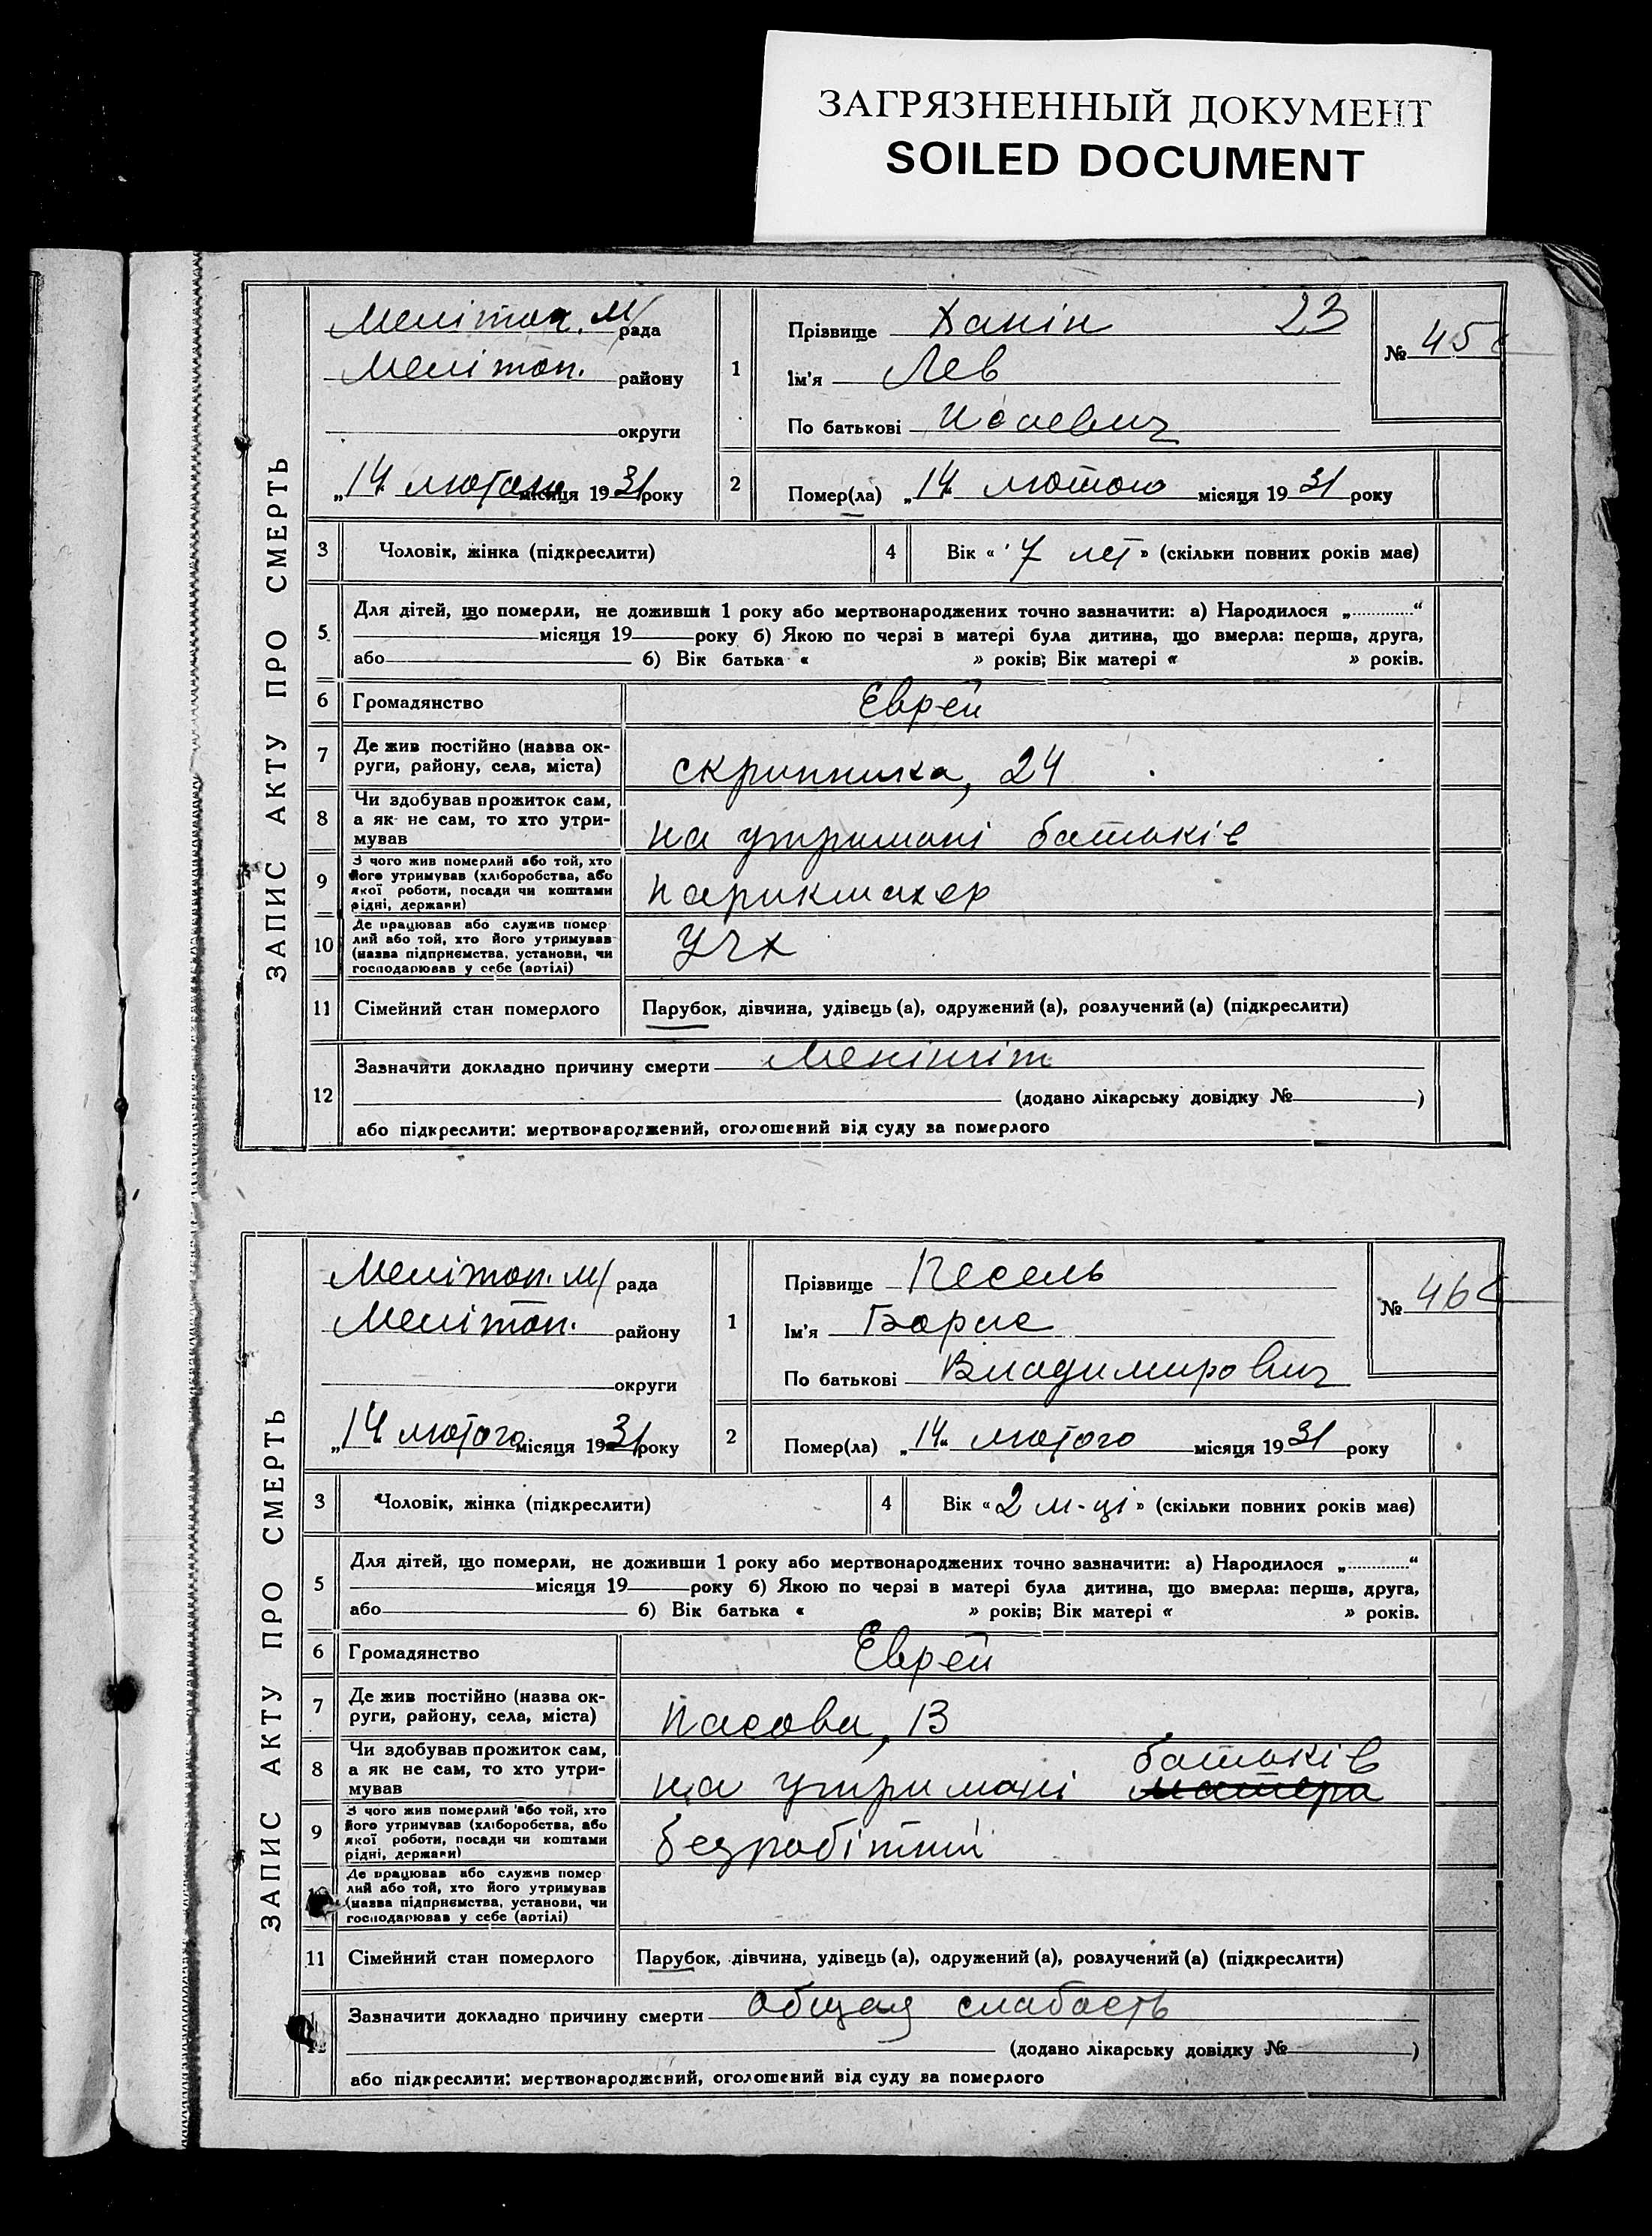 ЗАГРЯЗНЕННЫЙ ДОКУМЕНТ
SOILED DOCUMENT
ЗАПИС АКТУ ПРО СМЕРТЬ
Мелітоп. М/рада
Мелітоп. району
округи
„14 лютого місяця 1931 року
1
Прізвище Ханін 23
Ім'я Лев
По батькові
№ 45
2
Помер(ла) „14“ лютого місяця 1931 року
3 Чоловік, жінка (підкреслити)
4 Вік « 7 лет » (скільки повних років має)
5. Для дітей, що померли, не доживши 1 року або мертвонароджених точно зазначити: а) Народилося „............“
місяця 19 року б) Якою по черзі в матері була дитина, що вмерла: перша, друга,
або б) Вік батька « » років; Вік матері « » років.
6 Громадянство Еврей
7 Де жив постійно (назва округи, району, села, міста) Скрипника, 24
8 Чи здобував прожиток сам, а як не сам, то хто утримував на утримані батьків
9 З чого жив померлий або той, хто його утримував (хліборобства, або якої роботи, посади чи коштами рідні, держави) парикмахер
10 Де працював або служив померлий або той, хто його утримував (назва підприємства, установи, чи господарював у себе (артілі) УЧХ
11 Сімейний стан померлого Парубок, дівчина, удівець (а), одружений (а), розлучений (а) (підкреслити)
12
Зазначити докладно причину смерти Менінгіт
(додано лікарську довідку № )
або підкреслити: мертвонароджений, оголошений від суду за померлого
ЗАПИС АКТУ ПРО СМЕРТЬ
Мелітоп. М/ рада
Мелітоп. району
округи
„14 лютого місяця 1931 року
1
Прізвище Кесель
Ім'я Борис
По батькові Владимирович
№ 46
2
Помер(ла) „14“ лютого місяця 1931 року
3 Чоловік, жінка (підкреслити)
4 Вік « 2 м-ці » (скільки повних років має)
5 Для дітей, що померли, не доживши 1 року або мертвонароджених точно зазначити: а) Народилося „............“
місяця 19 року б) Якою по черзі в матері була дитина, що вмерла: перша, друга,
або б) Вік батька « » років; Вік матері « » років.
6 Громадянство Еврей
7 Де жив постійно (назва округи, району, села, міста) Пасова, 13
8 Чи здобував прожиток сам, а як не сам, то хто утримував на утримані батьків
9 З чого жив померлий або той, хто його утримував (хліборобства, або якої роботи, посади чи коштами рідні, держави) безробітний
10 Де працював або служив померлий або той, хто його утримував (назва підприємства, установи, чи господарював у себе (артілі)
11 Сімейний стан померлого Парубок, дівчина, удівець (а), одружений (а), розлучений (а) (підкреслити)
12
Зазначити докладно причину смерти общая слабость
(додано лікарську довідку № )
або підкреслити: мертвонароджений, оголошений від суду за померлого